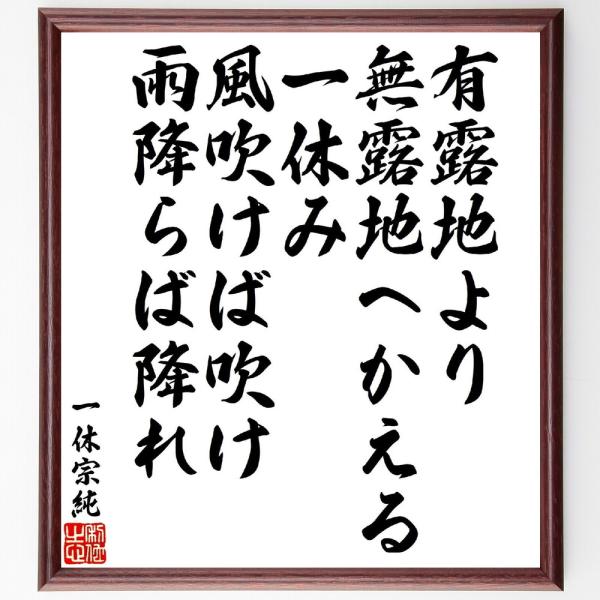 有露地より
無露地へかえる
一休み
風吹けば吹け
雨降らば降れ
一休宗純